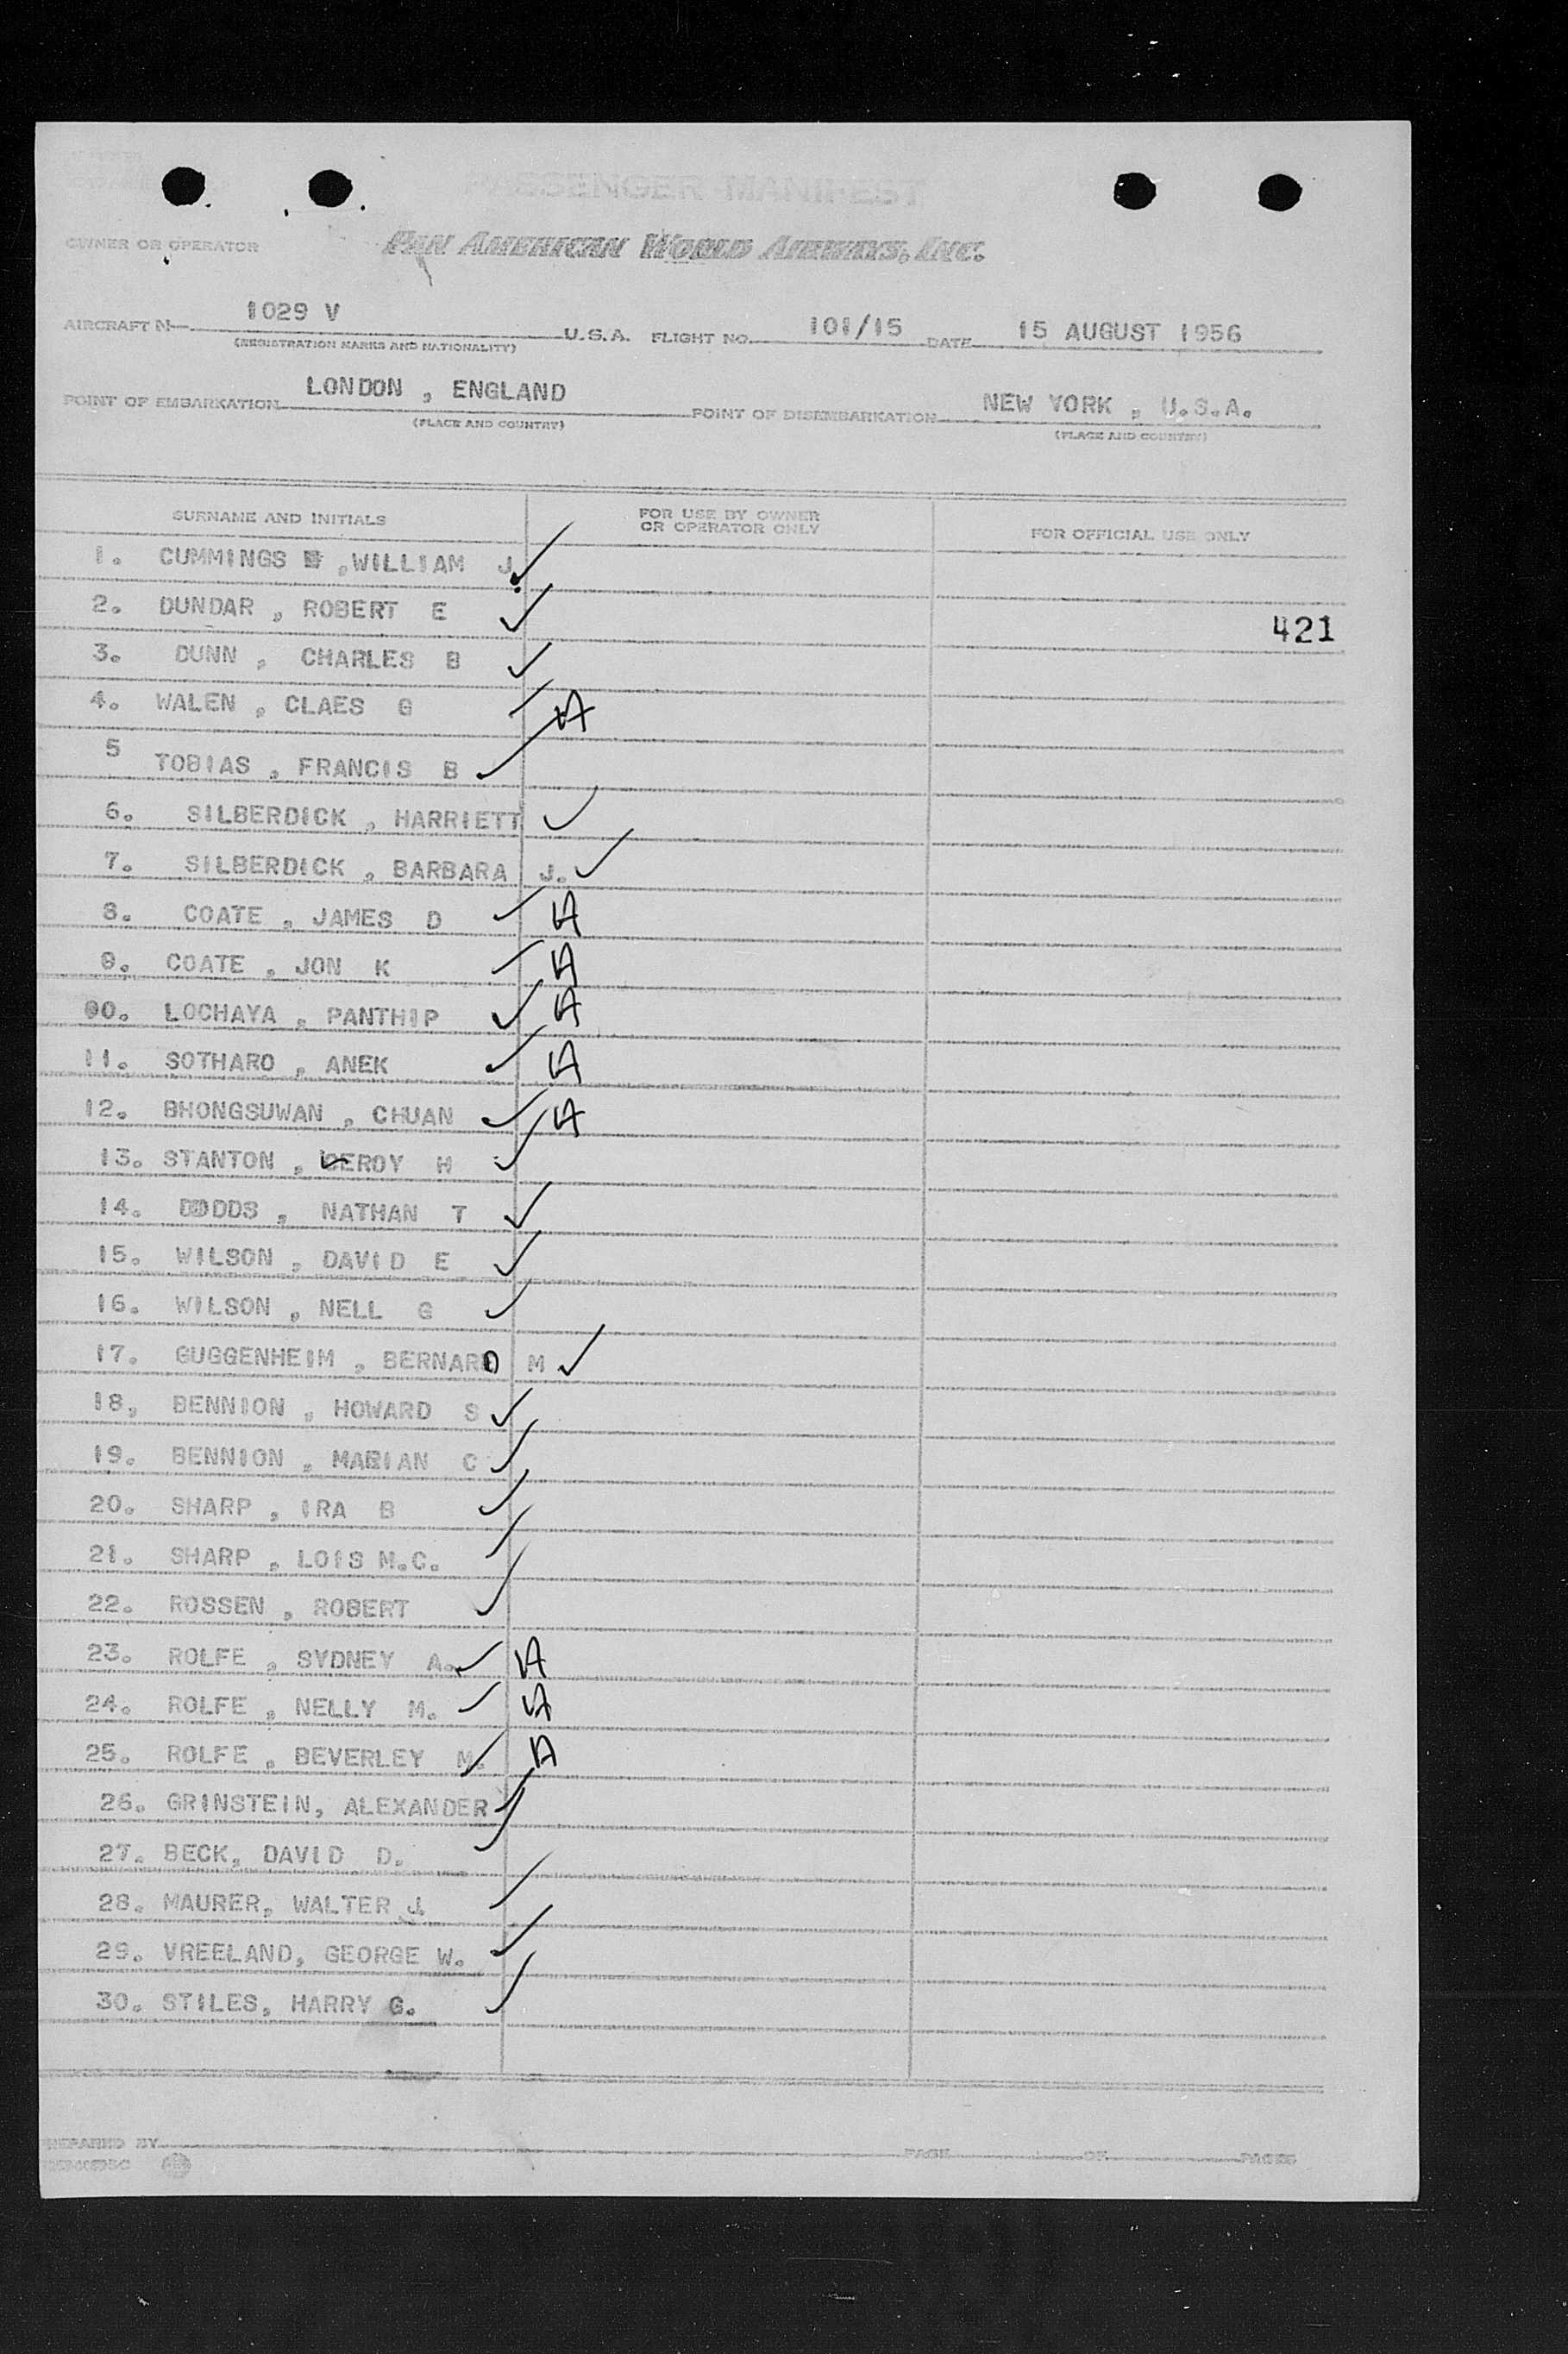 PASSENGER MANIFEST
OWNER OR OPERATOR PAN AMERICAN WORLD AIRWAYS, INC.
AIRCRAFT N— 1029 V U.S.A. FLIGHT NO. 101/15 DATE 15 AUGUST 1956
(REGISTRATION MARKS AND NATIONALITY)
POINT OF EMBARKATION LONDON , ENGLAND POINT OF DISEMBARKATION NEW YORK , U.S.A.
(PLACE AND COUNTRY) (PLACE AND COUNTRY)
SURNAME AND INITIALS FOR USE BY OWNER OR OPERATOR ONLY FOR OFFICIAL USE ONLY
1. CUMMINGS , WILLIAM J. ✓
2. DUNDAR , ROBERT E ✓
421
3. DUNN , CHARLES B ✓
4. WALEN , CLAES G ✓ A
5 TOBIAS , FRANCIS B ✓
6. SILBERDICK , HARRIETT ✓
7. SILBERDICK , BARBARA J. ✓
8. COATE , JAMES D ✓ A
9. COATE , JON K ✓ A
00. LOCHAYA , PANTHIP ✓ A
11. SOTHARO , ANEK ✓ A
12. BHONGSUWAN , CHUAN ✓ A
13. STANTON , LEROY H ✓
14. DODDS , NATHAN T ✓
15. WILSON , DAVID E ✓
16. WILSON , NELL G ✓
17. GUGGENHEIM , BERNARD M ✓
18. BENNION , HOWARD S ✓
19. BENNION , MARIAN C ✓
20. SHARP , IRA B ✓
21. SHARP , LOIS M.C. ✓
22. ROSSEN , ROBERT ✓
23. ROLFE , SYDNEY A. ✓ A
24. ROLFE , NELLY M. ✓ A
25. ROLFE , BEVERLEY M. ✓ A
26. GRINSTEIN, ALEXANDER ✓
27. BECK, DAVID D. ✓
28. MAURER, WALTER J. ✓
29. VREELAND, GEORGE W. ✓
30. STILES, HARRY G. ✓
PREPARED BY PAGE OF PAGES